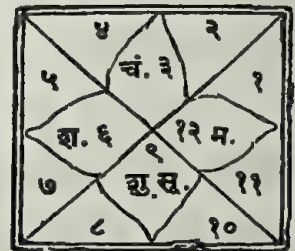 ४ २
चं. ३
५ १
श. ६ १२ म.
९
७ शु. सू. ११
८ १०